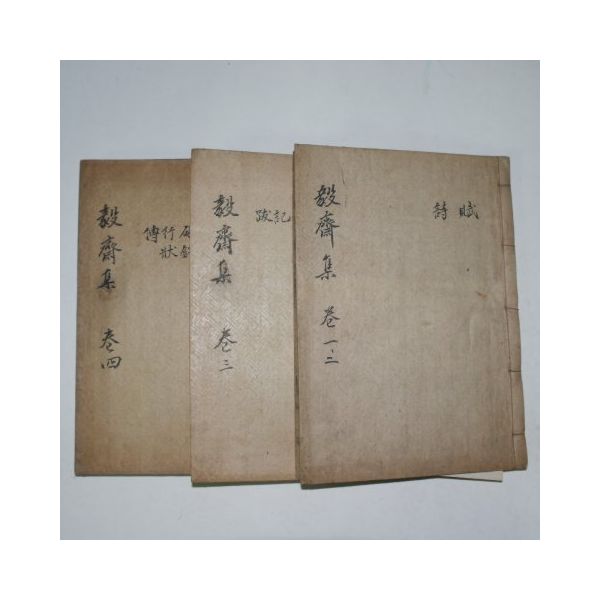 賦
詩
毅齋集 卷一、二
記
跋
毅齋集 卷三
行狀
傳
毅齋集 卷四